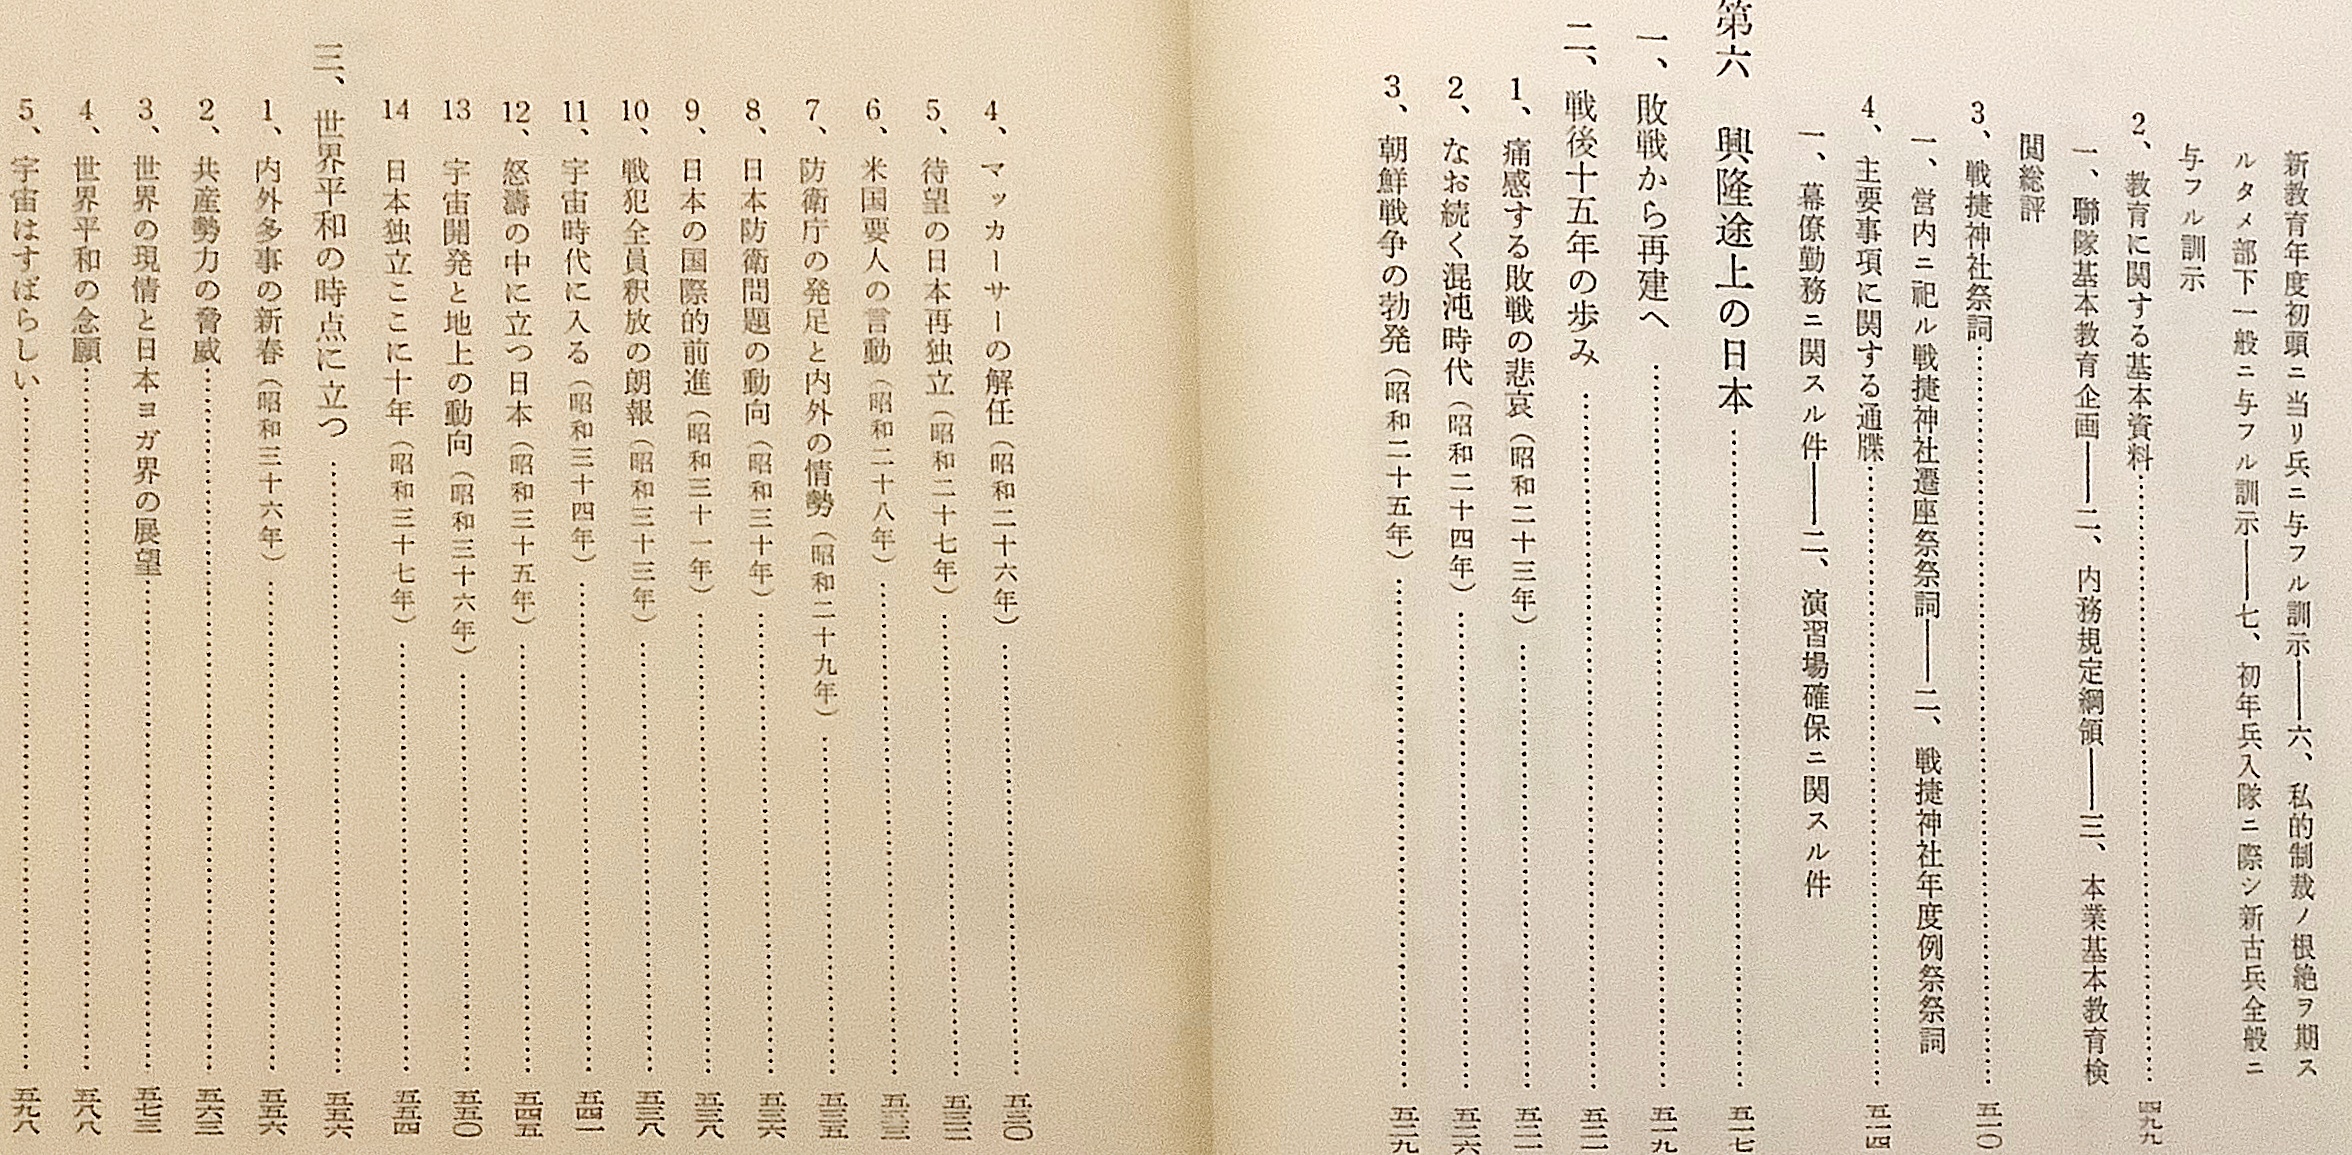 新教育年度初頭ニ当リ兵ニ与フル訓示――六、私的制裁ノ根絶ヲ期ス
ルタメ部下一般ニ与フル訓示――七、初年兵入隊ニ際シ新古兵全般ニ
与フル訓示
2、教育に関する基本資料……四九九
一、聯隊基本教育企画――二、内務規定綱領――三、本業基本教育検
閲総評
3、戦捷神社祭詞……五一〇
一、営内ニ祀ル戦捷神社遷座祭祭詞――二、戦捷神社年度例祭祭詞
4、主要事項に関する通牒……五一四
一、幕僚勤務ニ関スル件――二、演習場確保ニ関スル件
第六 興隆途上の日本……五一七
一、敗戦から再建へ……五一九
二、戦後十五年の歩み……五二一
1、痛感する敗戦の悲哀（昭和二十三年）……五二一
2、なお続く混沌時代（昭和二十四年）……五二六
3、朝鮮戦争の勃発（昭和二十五年）……五二九
4、マッカーサーの解任（昭和二十六年）……五三〇
5、待望の日本再独立（昭和二十七年）……五三二
6、米国要人の言動（昭和二十八年）……五三三
7、防衛庁の発足と内外の情勢（昭和二十九年）……五三五
8、日本防衛問題の動向（昭和三十年）……五三六
9、日本の国際的前進（昭和三十一年）……五三八
10、戦犯全員釈放の朗報（昭和三十三年）……五三八
11、宇宙時代に入る（昭和三十四年）……五四一
12、怒濤の中に立つ日本（昭和三十五年）……五四五
13 宇宙開発と地上の動向（昭和三十六年）……五五〇
14 日本独立ここに十年（昭和三十七年）……五五四
三、世界平和の時点に立つ……五五六
1、内外多事の新春（昭和三十六年）……五五六
2、共産勢力の脅威……五六三
3、世界の現情と日本ヨガ界の展望……五七三
4、世界平和の念願……五八八
5、宇宙はすばらしい……五九八